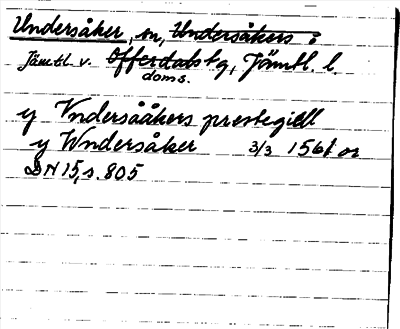 Undersåker, sn, Undersåkers :
Jämtl. v. Offerdals tg, Jämtl. l.
doms.
y Vndersååkers prestegiell
y Wndersåker 3/3 1561 or
DN 15, s. 805